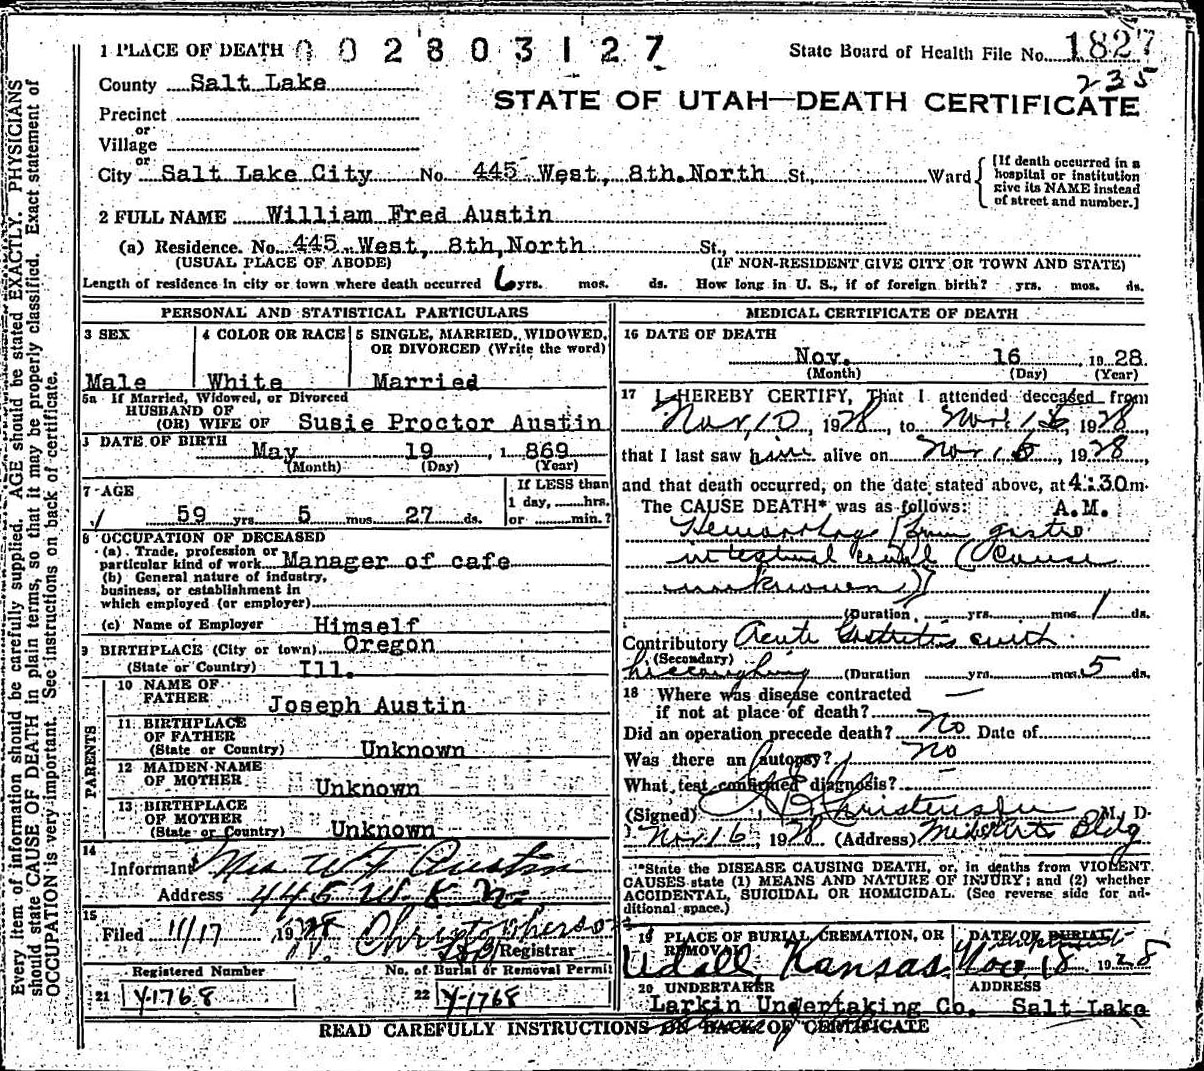 1 PLACE OF DEATH 0 0 2 8 0 3 1 2 7
State Board of Health File No. 1827
235
County Salt Lake
STATE OF UTAH—DEATH CERTIFICATE
Precinct
or
Village
or
City Salt Lake City No. 445 West, 8th.North St., Ward
[If death occurred in a hospital or institution give its NAME instead of street and number.]
2 FULL NAME William Fred Austin
(a) Residence. No. 445 West, 8th,North St.
(USUAL PLACE OF ABODE) (IF NON-RESIDENT GIVE CITY OR TOWN AND STATE)
Length of residence in city or town where death occurred 6 yrs. mos. ds. How long in U. S., if of foreign birth? yrs. mos. ds.
PERSONAL AND STATISTICAL PARTICULARS
3 SEX
Male
4 COLOR OR RACE
White
5 SINGLE, MARRIED, WIDOWED, OR DIVORCED (Write the word)
Married
5a If Married, Widowed, or Divorced
HUSBAND OF
(OR) WIFE OF Susie Proctor Austin
DATE OF BIRTH May 19 , 1 869
(Month) (Day) (Year)
7 AGE
59 yrs. 5 mos. 27 ds.
If LESS than
1 day, hrs.
or min.?
8 OCCUPATION OF DECEASED
(a) Trade, profession or
particular kind of work Manager of cafe
(b) General nature of industry,
business, or establishment in
which employed (or employer)
(c) Name of Employer Himself
9 BIRTHPLACE (City or town) Oregon
(State or Country) Ill.
PARENTS
10 NAME OF
FATHER Joseph Austin
11 BIRTHPLACE
OF FATHER
(State or Country) Unknown
12 MAIDEN NAME
OF MOTHER Unknown
13 BIRTHPLACE
OF MOTHER
(State or Country) Unknown
14
Informant Mrs W F Austin
Address 445 W. 8 N.
15
Filed 11/17 , 1928
Registrar
Registered Number
21 Y-1768
No. of Burial or Removal Permit
22 Y-1768
MEDICAL CERTIFICATE OF DEATH
16 DATE OF DEATH
Nov. 16 , 1928
(Month) (Day) (Year)
17 I HEREBY CERTIFY, That I attended deceased from
Nov, 10 , 1928, to Nov. 16, 1928
that I last saw him alive on Nov 16 , 1928,
and that death occurred, on the date stated above, at 4:30 m.
The CAUSE DEATH* was as follows: A.M.
Hemorrhage from gastro
intestinal canal (Cause
unknown)
(Duration yrs. mos. 1 ds.
Contributory Acute Gastritis with
(Secondary)
hiccoughing (Duration yrs. mos. 5 ds.
18 Where was disease contracted
if not at place of death? —
Did an operation precede death? no Date of
Was there an autopsy? no
What test confirmed diagnosis? —
(Signed) Christensen M. D.
Nov 16 , 1928 (Address) Bldg
*State the DISEASE CAUSING DEATH, or, in deaths from VIOLENT
CAUSES state (1) MEANS AND NATURE OF INJURY; and (2) whether
ACCIDENTAL, SUICIDAL OR HOMICIDAL. (See reverse side for ad-
ditional space.)
19 PLACE OF BURIAL, CREMATION, OR
REMOVAL
Udall, Kansas.
DATE OF BURIAL shipment
Nov. 18 1928
20 UNDERTAKER
Larkin Undertaking Co.
ADDRESS
Salt Lake
READ CAREFULLY INSTRUCTIONS ON BACK OF CERTIFICATE
Every item of information should be carefully supplied. AGE should be stated EXACTLY. PHYSICIANS
should state CAUSE OF DEATH in plain terms, so that it may be properly classified. Exact statement of
OCCUPATION is very important. See instructions on back of certificate.